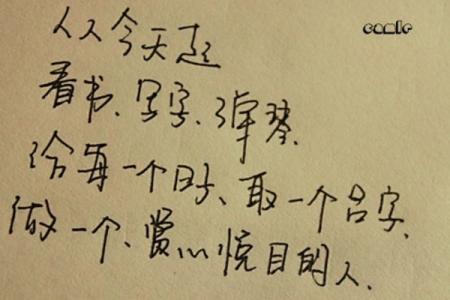 从今天起
看书、写字、弹琴.
给每一个日子、取一个名字.
做一个、赏心悦目的人.